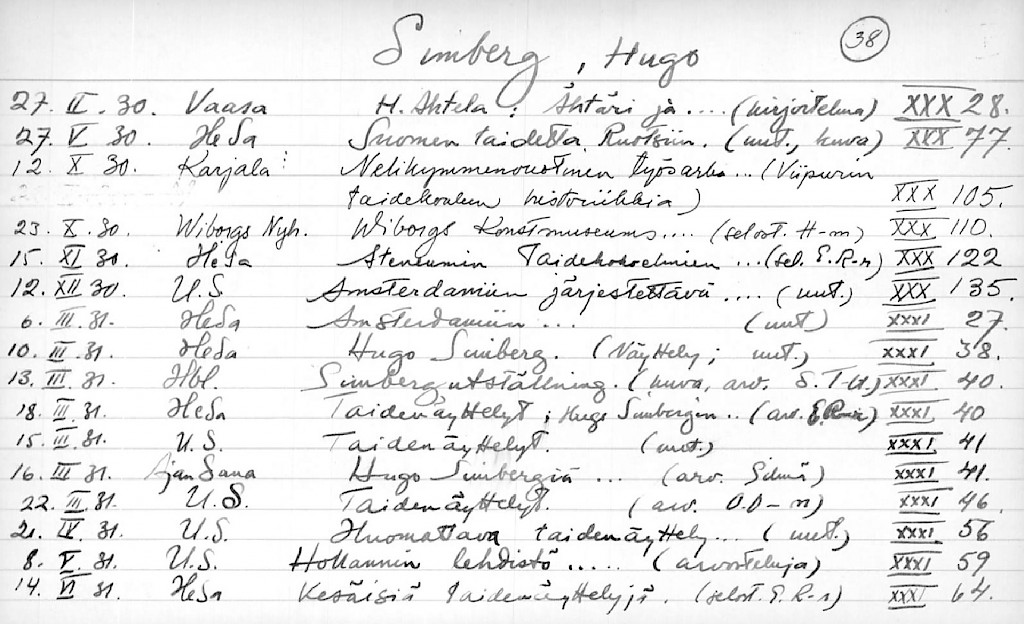 Simberg, Hugo 38
27. II. 30. Vaasa H. Ahtela: Ähtäri ja .... (kirjoitelma) XXX 28.
27. V 30. HeSa Suomen taidetta Ruotsiin. (uut., kuva) XXX 77.
12. X 30. Karjala: Nelikymmenvuotinen työsarka... (Viipurin
taidekoulun historiikkia) XXX 105.
23. X. 30. Wiborgs Nyh. Wiborgs Konstmuseums.... (selost. H-m) XXX 110.
15. XI 30. HeSa Steniumin Taidekokoelmien ...(sel. E.R-r) XXX 122
12. XII 30. U.S Amsterdamiin järjestettävä .... (uut.) XXX 135.
6. III. 31. HeSa Amsterdamiin ... (uut) XXXI 27.
10. III. 31. HeSa Hugo Simberg. (Näyttely; uut.) XXXI 38.
13. III. 31. Hbl. Simbergutställning. (kuva, arv. S.T-U.) XXXI 40.
18. III. 31. HeSa Taidenäyttelyt; Hugo Simbergin .. (arv. E.R-r) XXXI 40
15. III. 31. U.S. Taidenäyttelyt. (uut.) XXXI 41
16. III 31. Ajan Sana Hugo Simbergiä ... (arv. Silmä) XXXI 41.
22. III. 31. U.S. Taidenäyttelyt. (arv. O.O-n) XXXI 46
21. IV. 31. U.S. Huomattava taidenäyttely... (uut.) XXXI 56
8. V. 31. U.S. Hollannin lehdistö ..... (arvosteluja) XXXI 59
14. VI 31. HeSa Kesäisiä taidenäyttelyjä. (selost. E.R-r) XXXI 64.